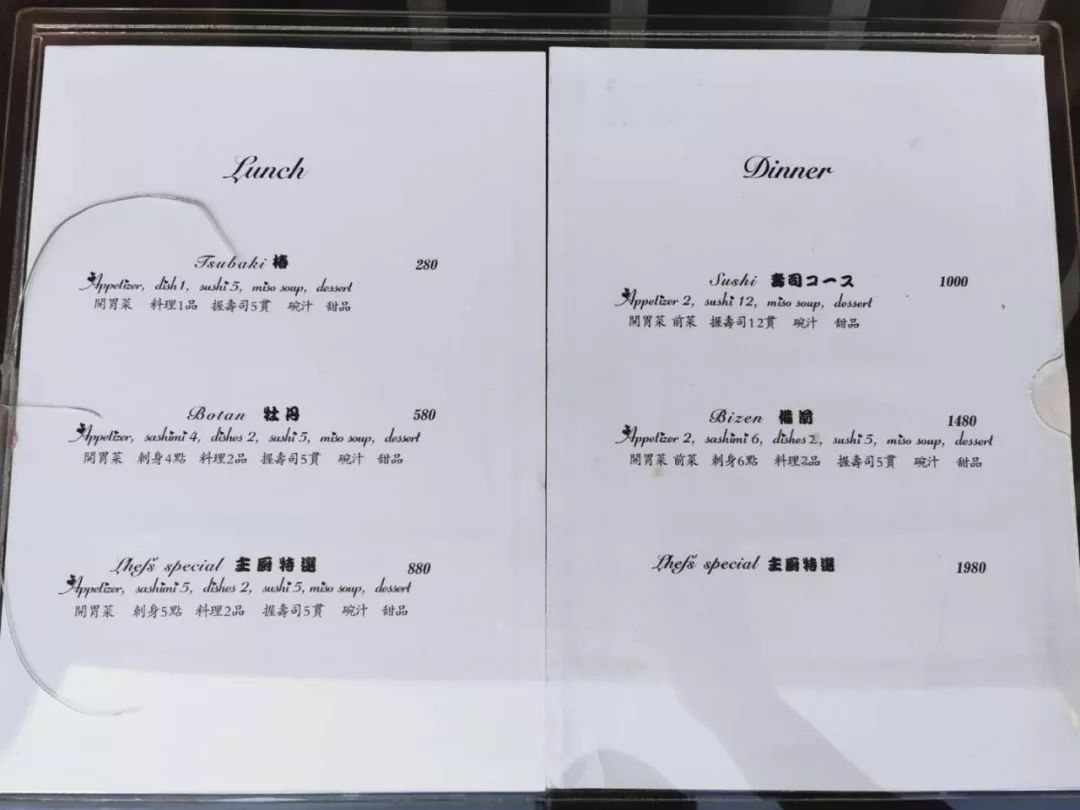 Lunch
Tsubaki 椿 280
Appetizer, dish 1, sushi 5, miso soup, dessert
開胃菜 料理1品 握壽司5貫 碗汁 甜品
Botan 牡丹 580
Appetizer, sashimi 4, dishes 2, sushi 5, miso soup, dessert
開胃菜 刺身4點 料理2品 握壽司5貫 碗汁 甜品
Chef's special 主厨特選 880
Appetizer, sashimi 5, dishes 2, sushi 5, miso soup, dessert
開胃菜 刺身5點 料理2品 握壽司5貫 碗汁 甜品
Dinner
Sushi 壽司コース 1000
Appetizer 2, sushi 12, miso soup, dessert
開胃菜 前菜 握壽司12貫 碗汁 甜品
Bizen 備前 1480
Appetizer 2, sashimi 6, dishes 2, sushi 5, miso soup, dessert
開胃菜 前菜 刺身6點 料理2品 握壽司5貫 碗汁 甜品
Chef's special 主厨特選 1980